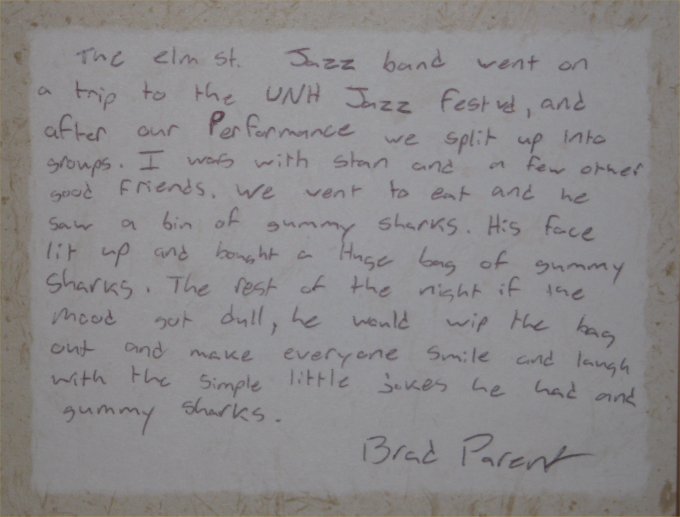 The elm st. Jazz band went on
a trip to the UNH Jazz Festval, and
after our Performance we split up into
groups. I was with stan and a few other
good Friends. We went to eat and he
saw a bin of gummy sharks. His face
lit up and bought a Huge bag of gummy
Sharks. The rest of the night if the
mood got dull, he would wip the bag
out and make everyone smile and laugh
with the simple little jokes he had and
gummy sharks.
Brad Parent